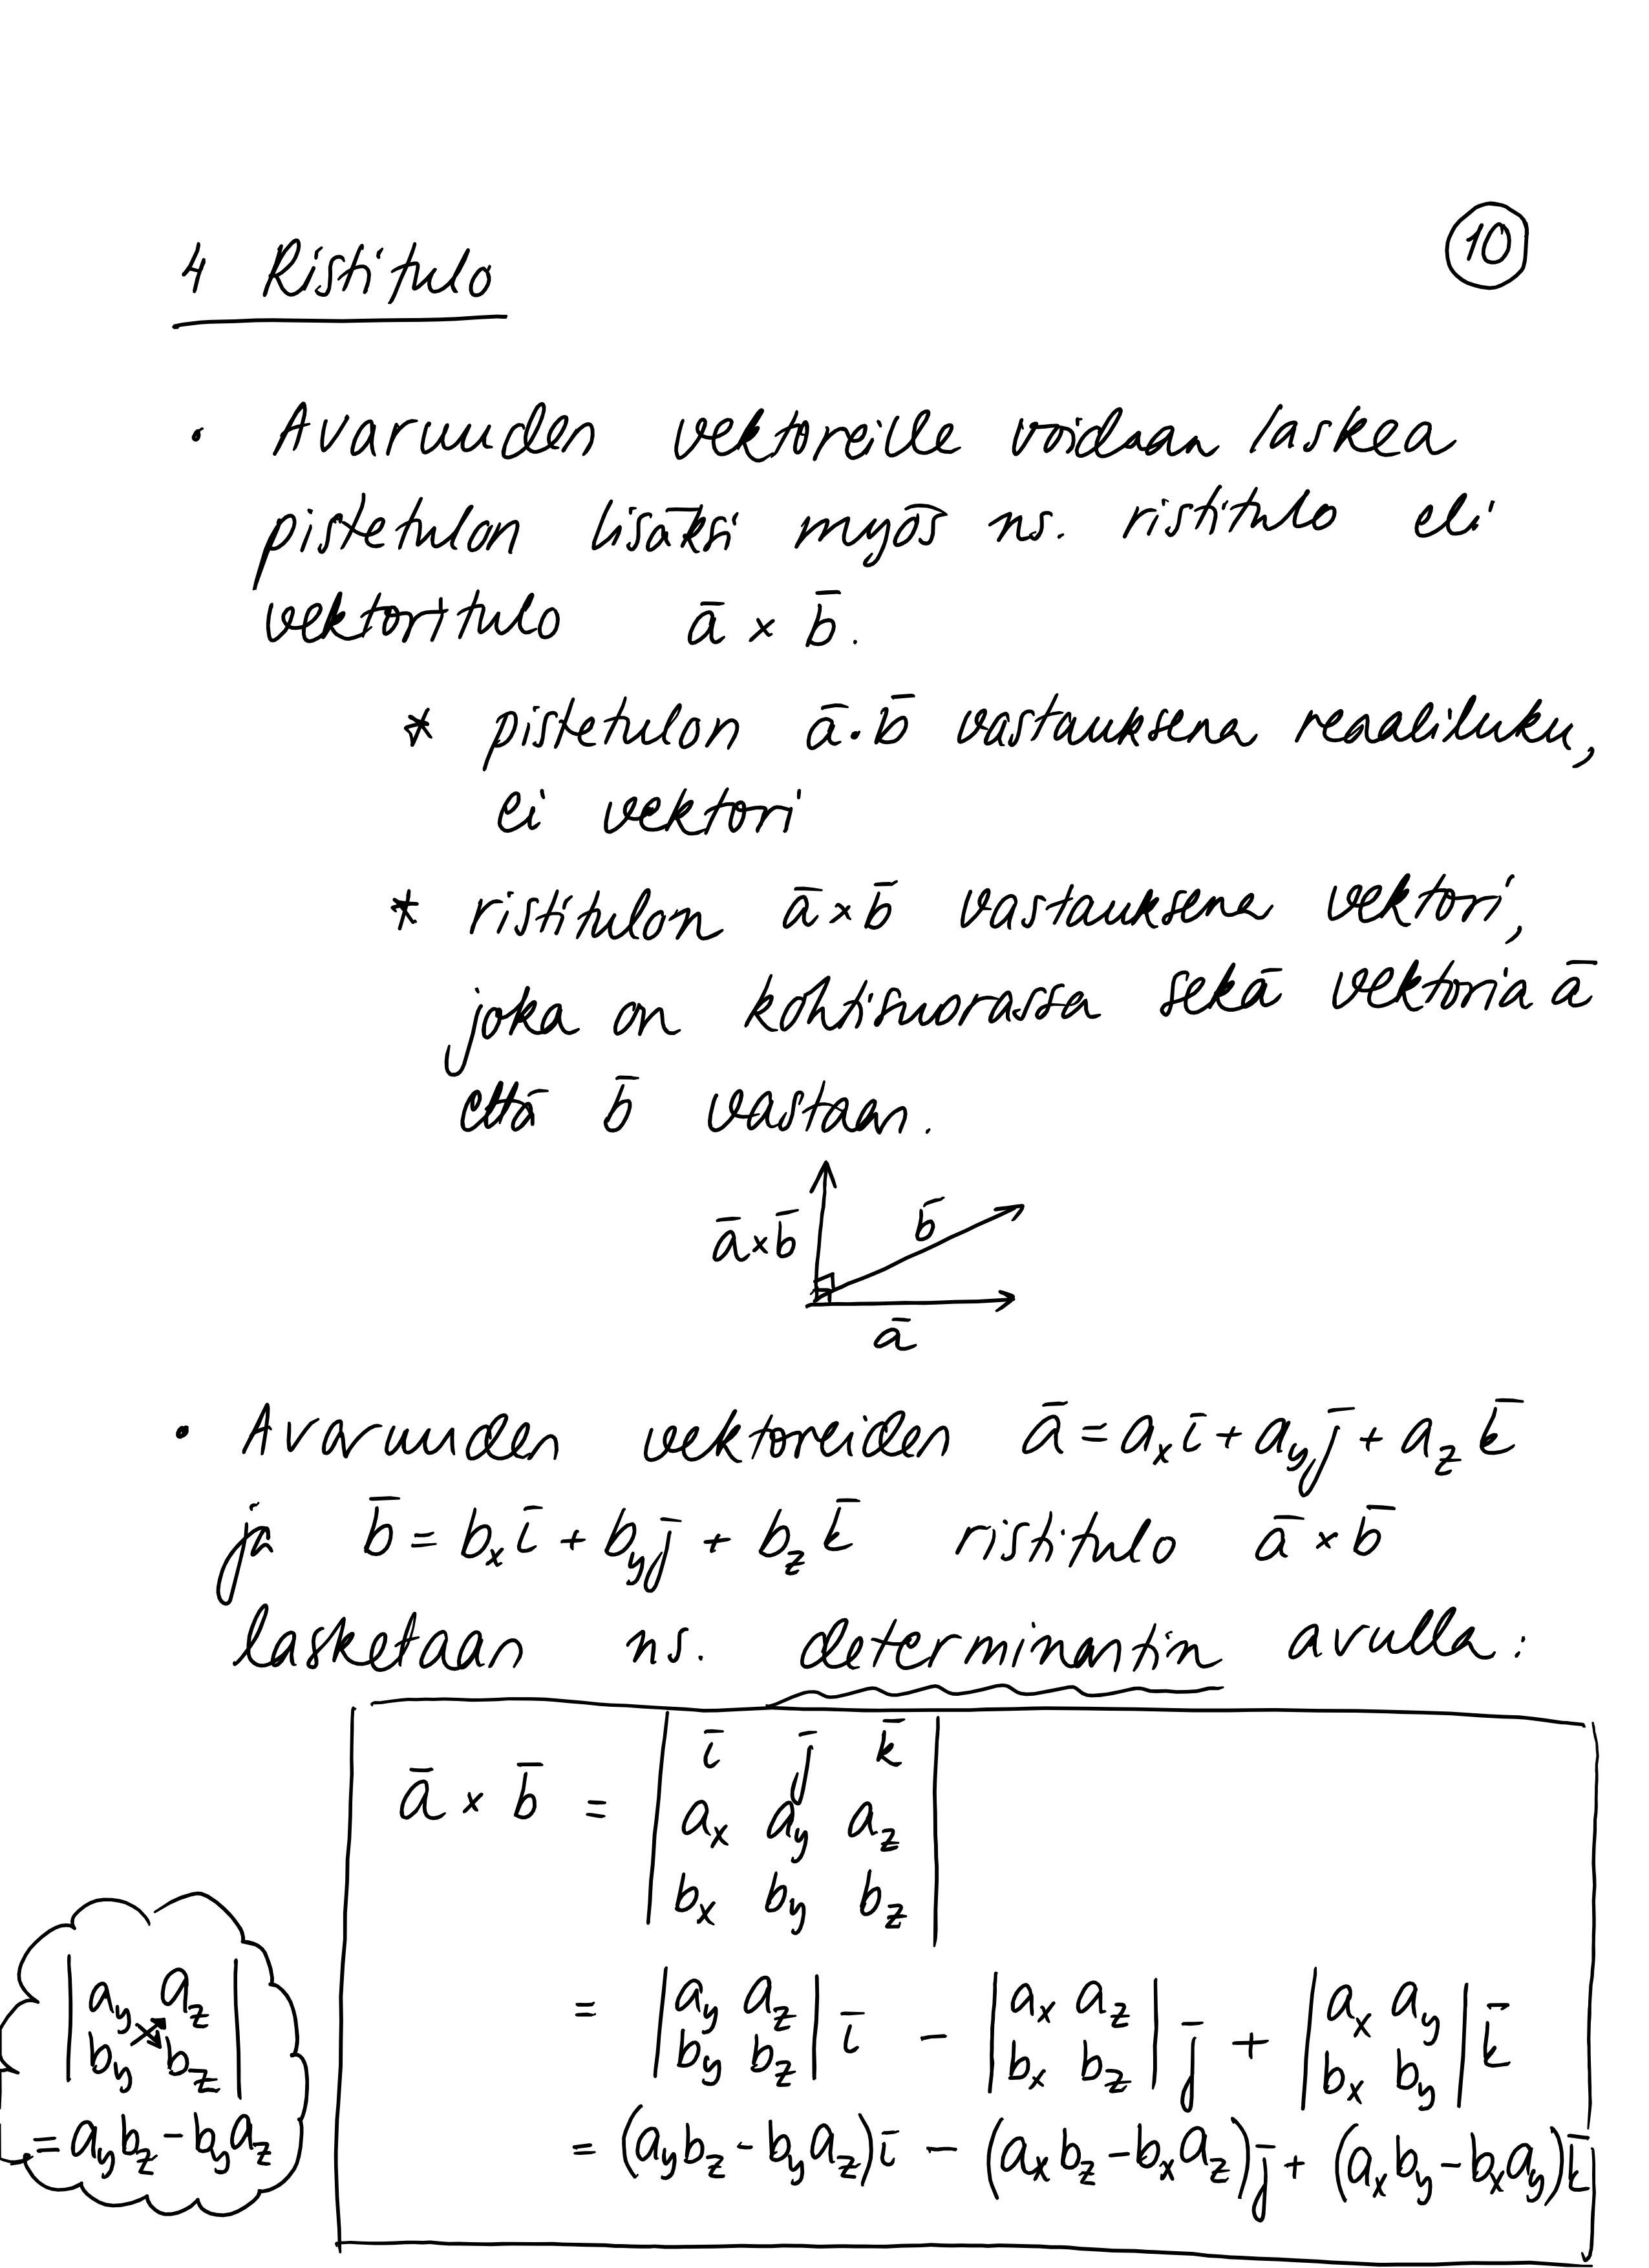 4 Ristitulo
10
• Avaruuden vektoreille voidaan laskea
pistetulon lisäksi myös ns. ristitulo eli
vektoritulo a̅ × b̅.
* pistetulon a̅·b̅ vastauksena reaaliluku,
ei vektori
* ristitulon a̅×b̅ vastauksena vektori,
joka on kohtisuorassa sekä vektoria a̅
että b̅ vastaan.
a̅×b̅
b̅
a̅
• Avaruuden vektoreiden a̅ = aₓ i̅ + a_y j̅ + a_z k̅
ja b̅ = bₓ i̅ + b_y j̅ + b_z k̅ ristitulo a̅ × b̅
lasketaan ns. determinantin avulla:
a̅ × b̅ = | i̅ j̅ k̅ |
| aₓ a_y a_z |
| bₓ b_y b_z |
= | a_y a_z | i̅ − | aₓ a_z | j̅ + | aₓ a_y | k̅
| b_y b_z | | bₓ b_z | | bₓ b_y |
= (a_y b_z − b_y a_z) i̅ − (aₓ b_z − bₓ a_z) j̅ + (aₓ b_y − bₓ a_y) k̅
| a_y a_z |
| b_y b_z |
= a_y b_z − b_y a_z